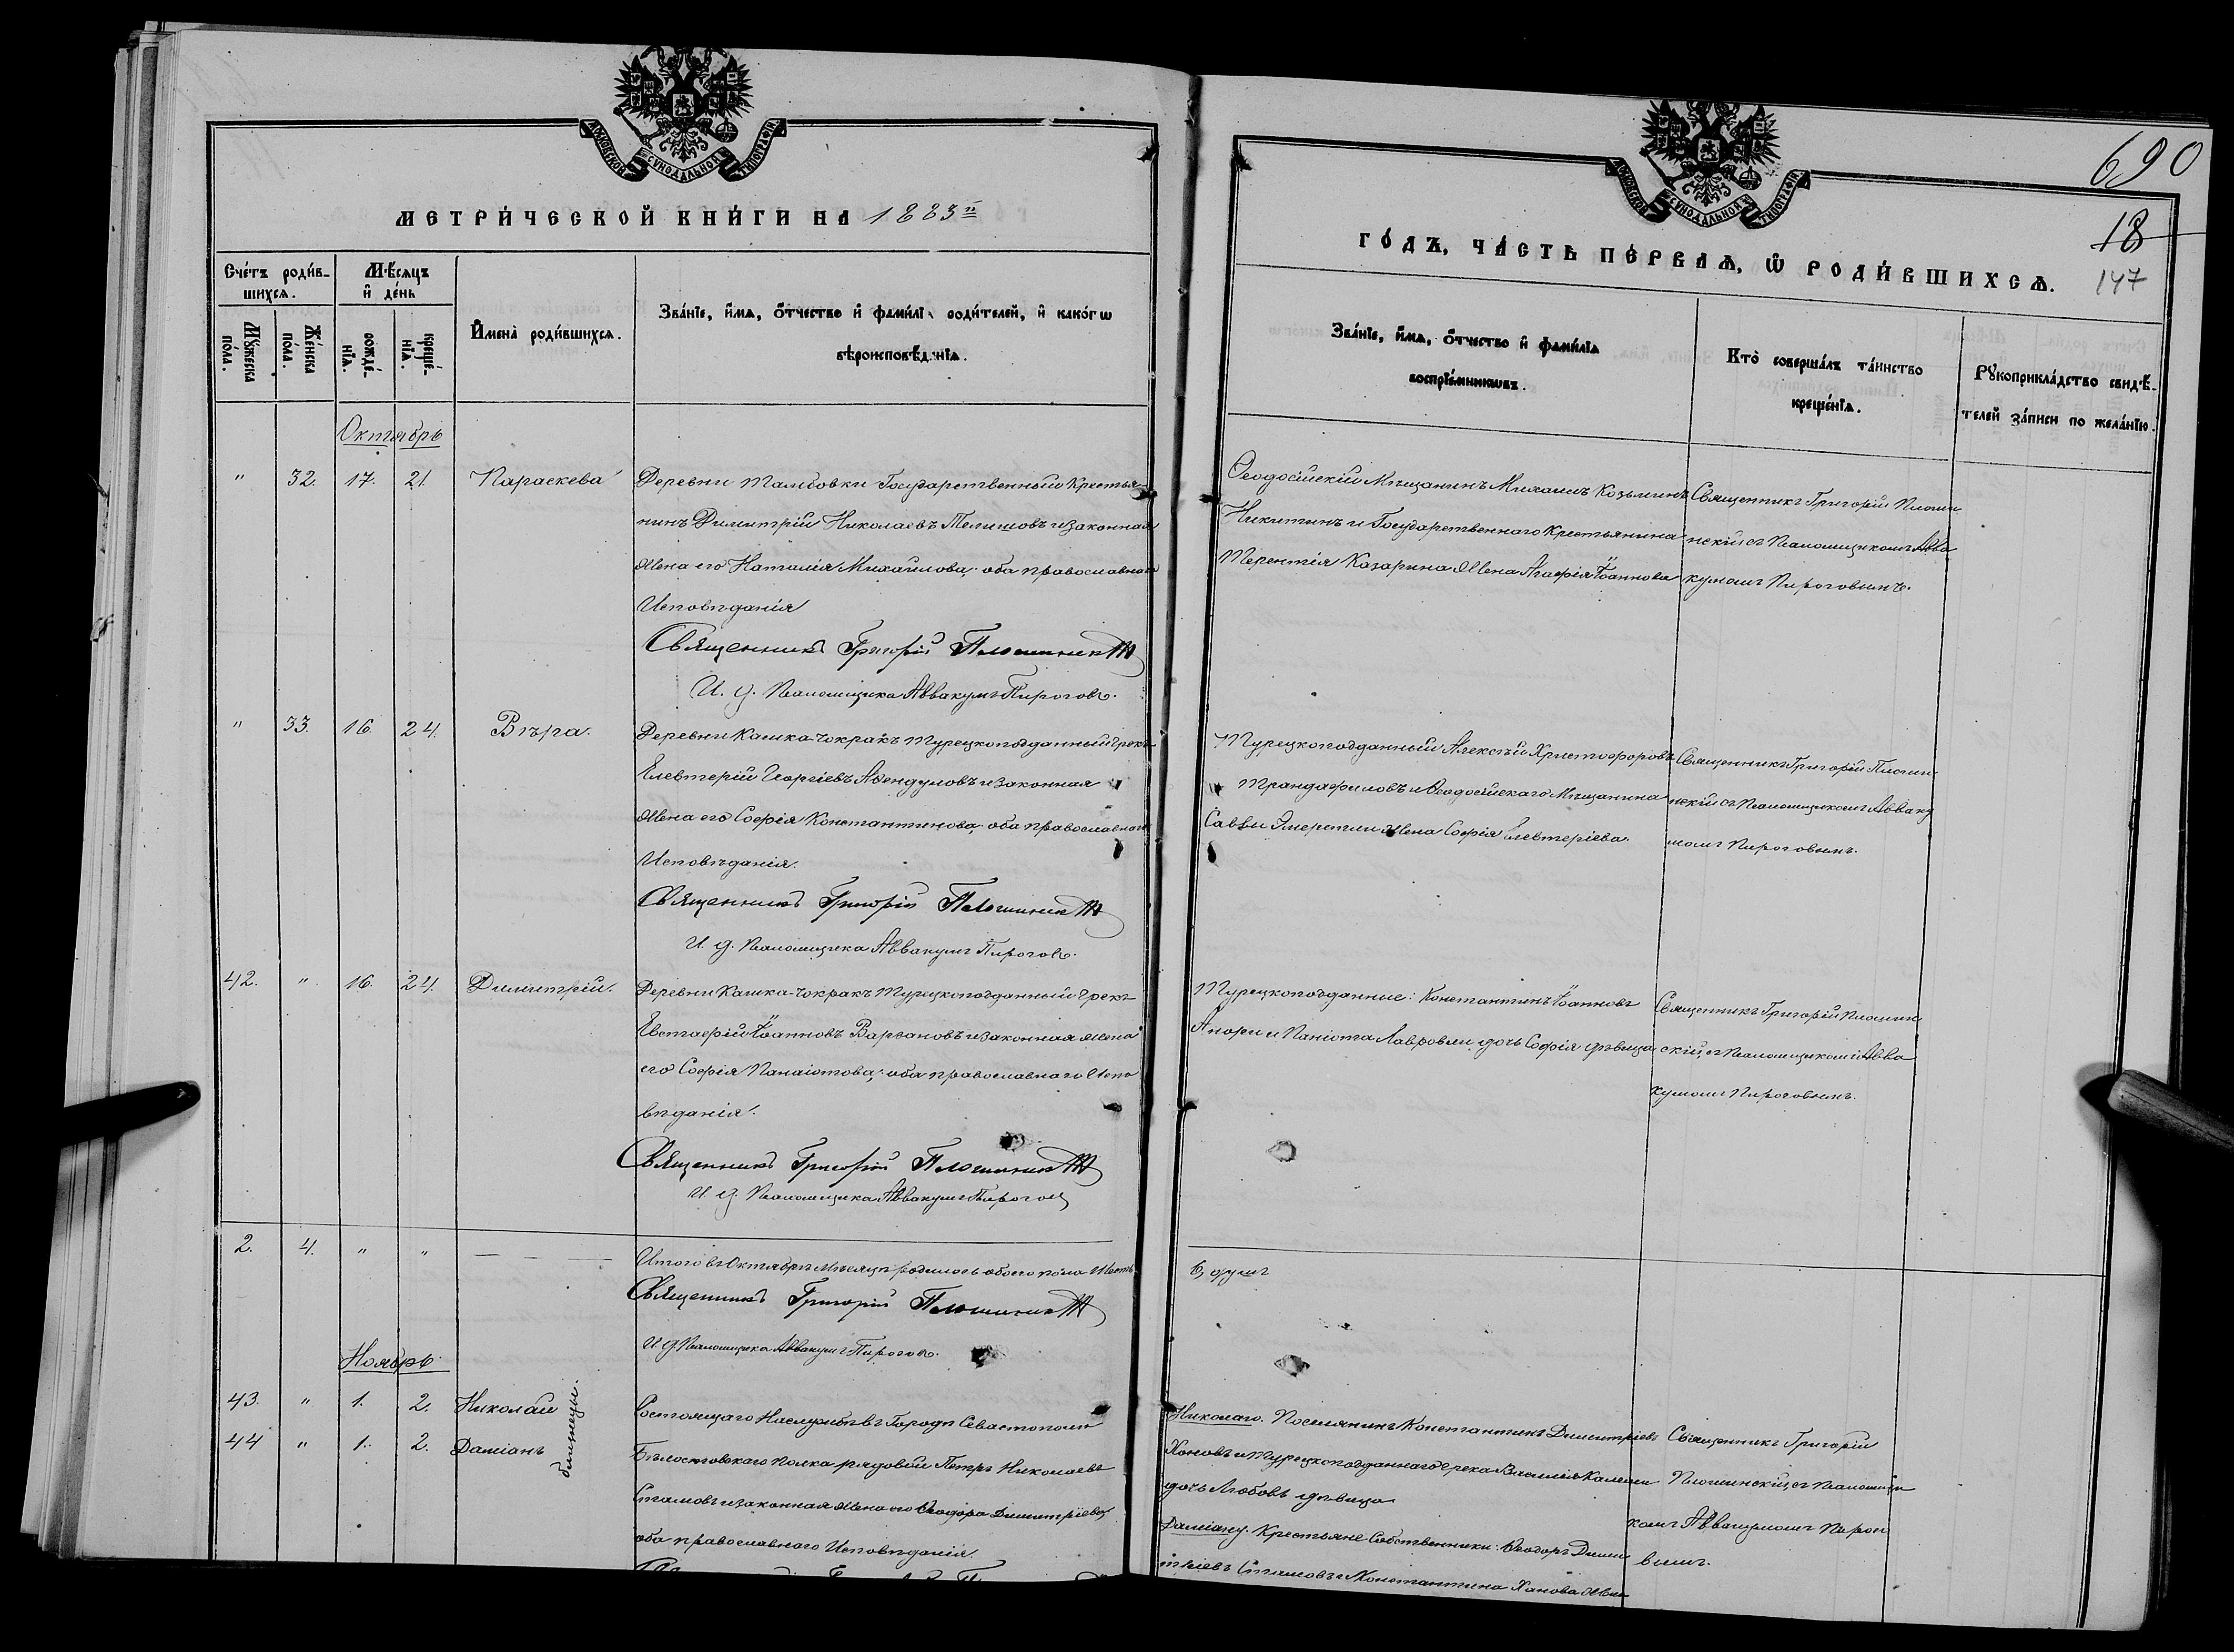 МОСКОВСКОЙ СУНОДАЛЬНОЙ ТИПОГРАФІИ
МЕТРИ́ЧЕСКОЙ КНИ́ГИ НА 1883й
Сче́тъ роди́в-
шихсѧ.
Мѣ́сѧцъ
и҆ де́нь
Мꙋ́жеска
по́ла.
Же́нска
по́ла.
рожде́-
нїѧ.
креще́-
нїѧ.
И҆мена̀ роди́вшихсѧ.
Зва́нїе, и҆́мѧ, ѻ҆́тчество и҆ фами́лїѧ роди́телей, и҆ како́гѡ
вѣроисповѣ́данїѧ.
Октябрь
" 32. 17. 21. Параскева
Деревни Тамбовки Государственный Крестья-
нинъ Димитрій Николаевъ и законная
жена его Наталія Михайлова, оба православнаго
Исповѣданія
Священникъ Григорій Плошинскій
И. д. Псаломщика Аввакумъ Пироговъ.
" 33. 16. 24. Вѣра.
Деревни Кашка-Чокракъ Турецкоподданный Грекъ
Елевтерій Георгіевъ и законная
жена его Софія Константинова, оба православнаго
Исповѣданія.
Священникъ Григорій Плошинскій
И. д. Псаломщика Аввакумъ Пироговъ.
42. " 16. 24. Димитрій.
Деревни Кашка-Чокракъ Турецкоподданный Грекъ
Евстафій Іоанновъ и законная жена
его Софія Панаіотова, оба православнаго Испо
вѣданія.
Священникъ Григорій Плошинскій
И. д. Псаломщика Аввакумъ Пироговъ
2. 4. " "
Итого въ Октябрѣ мѣсяцѣ родилось обоего пола шесть
Священникъ Григорій Плошинскій
И. д. Псаломщика Аввакумъ Пироговъ.
Ноябрь
43. " 1. 2. Николай
44 " 1. 2. Даміанъ
близнецы.
Состоящаго на службѣ въ Городѣ Севастополѣ
Бѣлостокскаго полка рядовой Петръ Николаевъ
Стамовъ и законная жена его Ѳеодора Димитріева
оба православнаго Исповѣданія.
690
18
147
МОСКОВСКОЙ СУНОДАЛЬНОЙ ТИПОГРАФІИ
ГО́ДЪ, ЧА́СТЬ ПЕ́РВАѦ, Ѡ҆ РОДИ́ВШИХСѦ.
Зва́нїе, и҆́мѧ, ѻ҆́тчество и҆ фами́лїѧ
воспрїе́мникѡвъ.
Кто̀ соверша́лъ та́инство
креще́нїѧ.
Рꙋкоприкла́дство свидѣ́-
телей за́писи по жела́нїю.
Ѳеодосійскій Мѣщанинъ Михаилъ Козьминъ
Никитинъ и Государственнаго Крестьянина
Терентія Казарина жена Агафія Іоаннова
Священникъ Григорій Плоши
нскій съ Псаломщикомъ Авва
кумомъ Пироговымъ.
Турецкоподданный Алексѣй Христофоровъ
Трандафиловъ и Ѳеодосійскаго Мѣщанина
Саввы жена Софія Елевтеріева.
Священникъ Григорій Плоши
нскій съ Псаломщикомъ Авваку
момъ Пироговымъ.
Турецкоподданные: Константинъ Іоанновъ
и Паніота дочь Софія дѣвица
Священникъ Григорій Плошин
скій съ Псаломщикомъ Авва
кумомъ Пироговымъ.
6, душъ
Николаю. Поселянинъ Константинъ Димитріевъ
Хановъ и Турецкоподданнаго Грека Василія
дочь Любовь дѣвица
Даміану. Крестьяне Собственники: Ѳеодоръ Дими
тріевъ Стамовъ и Константина Ханова жена
Священникъ Григорій
Плошинскій съ Псаломщи
комъ Аввакумомъ Пирого
вымъ.